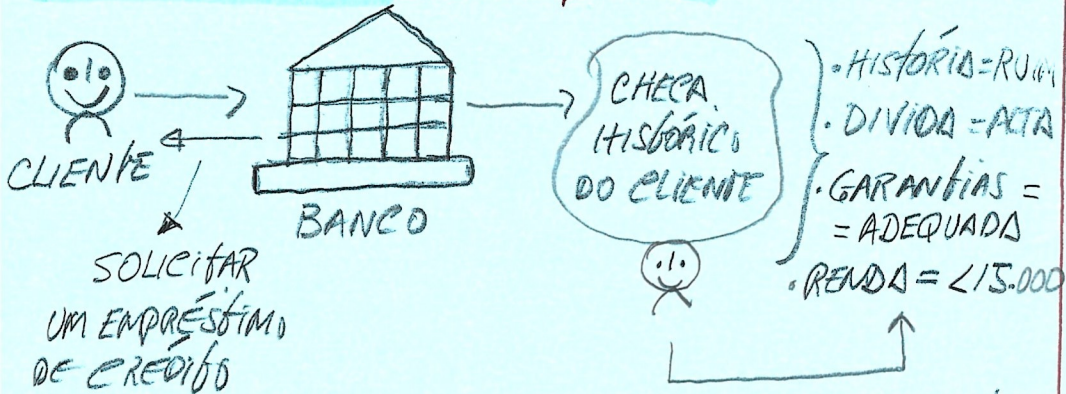 CLIENTE
BANCO
SOLICITAR
UM EMPRÉSTIMO
DE CRÉDITO
CHECA
HISTÓRICO
DO CLIENTE
• HISTÓRIA = RUIM
• DIVIDA = ALTA
• GARANTIAS =
= ADEQUADA
• RENDA = <15.000